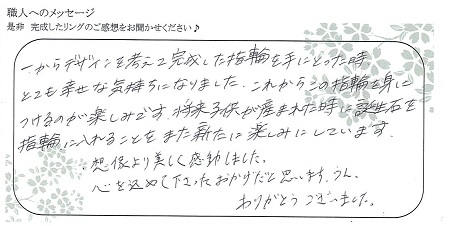 職人へのメッセージ
是非 完成したリングのご感想をお聞かせください♪
一からデザインを考えて完成した指輪を手にとった時
とても幸せな気持ちになりました。これからこの指輪を身に
つけるのが楽しみです。将来子供が産まれた時に誕生石を
指輪に入れることをまた新たに楽しみにしています。
想像より美しく感動しました。
心を込めて下さったおかげだと思います。うん。
ありがとうございました。